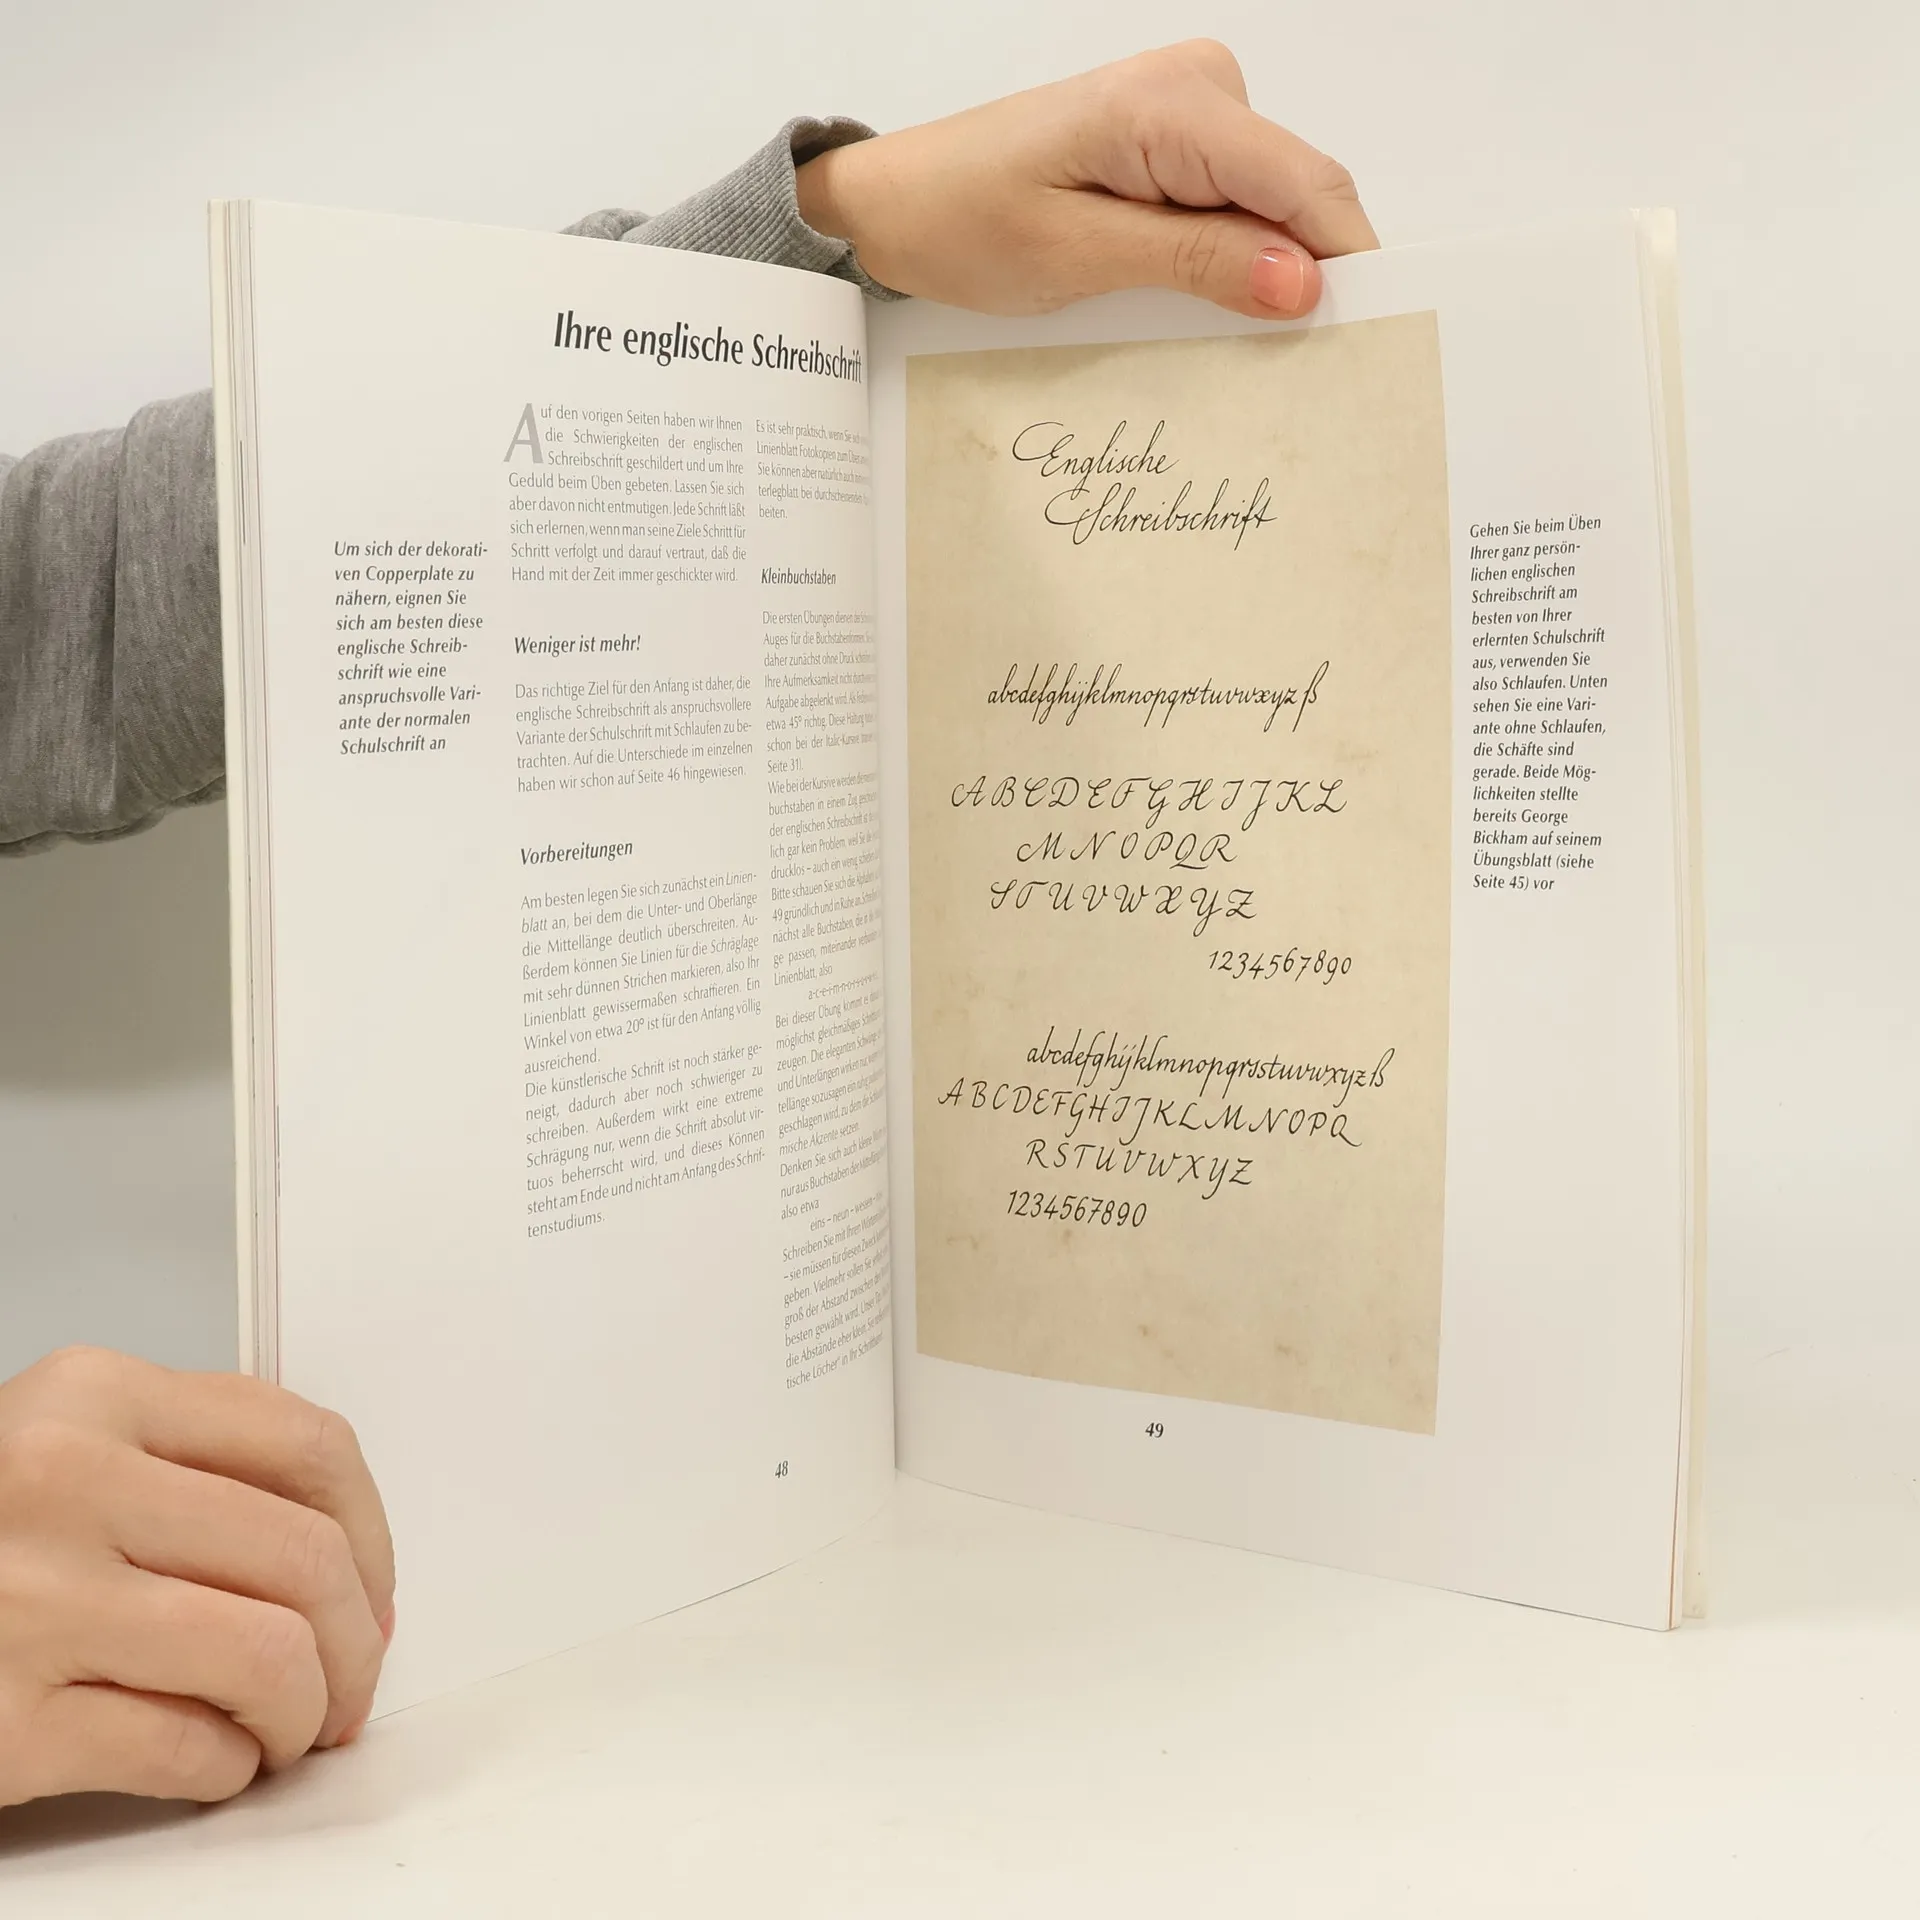 Ihre englische Schreibschrift
Um sich der dekorati-
ven Copperplate zu
nähern, eignen Sie
sich am besten diese
englische Schreib-
schrift wie eine
anspruchsvolle Vari-
ante der normalen
Schulschrift an
Auf den vorigen Seiten haben wir Ihnen
die Schwierigkeiten der englischen
Schreibschrift geschildert und um Ihre
Geduld beim Üben gebeten. Lassen Sie sich
aber davon nicht entmutigen. Jede Schrift läßt
sich erlernen, wenn man seine Ziele Schritt für
Schritt verfolgt und darauf vertraut, daß die
Hand mit der Zeit immer geschickter wird.
Weniger ist mehr!
Das richtige Ziel für den Anfang ist daher, die
englische Schreibschrift als anspruchsvollere
Variante der Schulschrift mit Schlaufen zu be-
trachten. Auf die Unterschiede im einzelnen
haben wir schon auf Seite 46 hingewiesen.
Vorbereitungen
Am besten legen Sie sich zunächst ein Linien-
blatt an, bei dem die Unter- und Oberlänge
die Mittellänge deutlich überschreiten. Au-
ßerdem können Sie Linien für die Schräglage
mit sehr dünnen Strichen markieren, also Ihr
Linienblatt gewissermaßen schraffieren. Ein
Winkel von etwa 20° ist für den Anfang völlig
ausreichend.
Die künstlerische Schrift ist noch stärker ge-
neigt, dadurch aber noch schwieriger zu
schreiben. Außerdem wirkt eine extreme
Schrägung nur, wenn die Schrift absolut vir-
tuos beherrscht wird, und dieses Können
steht am Ende und nicht am Anfang des Schrif-
tenstudiums.
Es ist sehr praktisch, wenn Sie sich
Linienblatt Fotokopien zum Üben
Sie können aber natürlich auch
terlegblatt bei durchscheinendem
beiten.
Kleinbuchstaben
Die ersten Übungen dienen der
Auges für die Buchstabenformen.
daher zunächst ohne Druck
Ihre Aufmerksamkeit nicht durch
Aufgabe abgelenkt wird. Als
etwa 45° richtig. Diese Haltung
schon bei der Italic-Kursive
Seite 31).
Wie bei der Kursive werden die
buchstaben in einem Zug
der englischen Schreibschrift ist
lich gar kein Problem, weil Sie
drucklos – auch ein wenig
Bitte schauen Sie sich die
49 gründlich und in Ruhe an.
nächst alle Buchstaben, die in
ge passen, miteinander
Linienblatt, also
a-c-e-i-m-n-o-r-s
Bei dieser Übung kommt es
möglichst gleichmäßiges
zeugen. Die eleganten
und Unterlängen wirken nur, wenn
tellänge sozusagen ein ruhig
geschlagen wird, zu dem die
mische Akzente setzen.
Denken Sie sich auch kleine
nur aus Buchstaben der
also etwa
eins – neun –
Schreiben Sie mit Ihren
– sie müssen für diesen Zweck
geben. Vielmehr sollen Sie
groß der Abstand zwischen den
besten gewählt wird. Unser
die Abstände eher klein. Sie
tische Löcher" in Ihr Schriftband
48
Englische
Schreibschrift
abcdefghijklmnopqrstuvwxyz ß
ABCDEFGHIJKL
MNOPQR
STUVWXYZ
1234567890
abcdefghijklmnopqrsstuvwxyzß
ABCDEFGHIJKLMNOPQ
RSTUVWXYZ
1234567890
Gehen Sie beim Üben
Ihrer ganz persön-
lichen englischen
Schreibschrift am
besten von Ihrer
erlernten Schulschrift
aus, verwenden Sie
also Schlaufen. Unten
sehen Sie eine Vari-
ante ohne Schlaufen,
die Schäfte sind
gerade. Beide Mög-
lichkeiten stellte
bereits George
Bickham auf seinem
Übungsblatt (siehe
Seite 45) vor
49